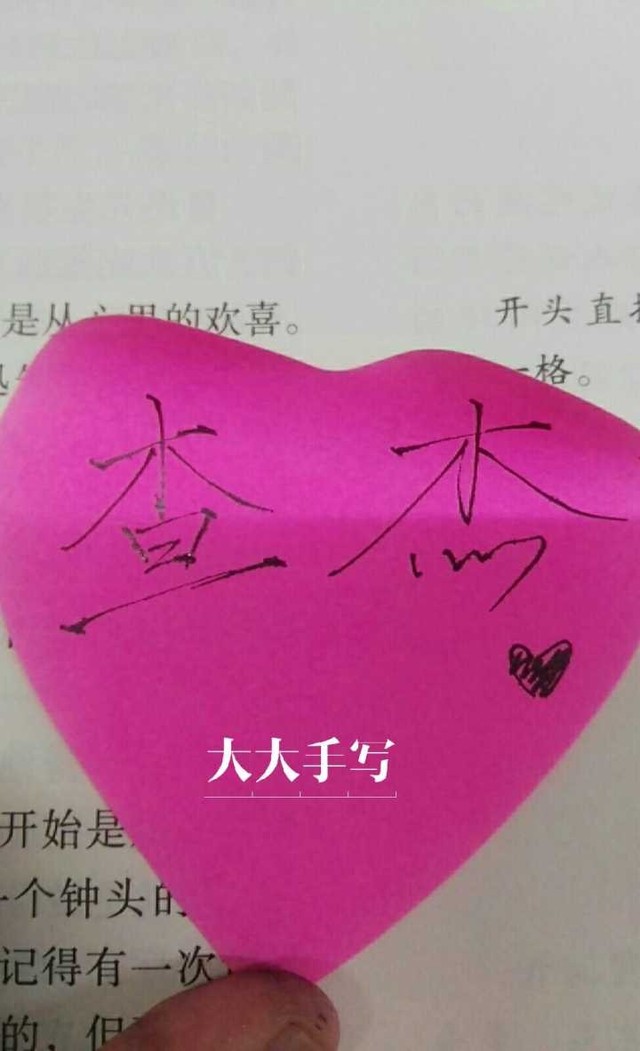 是从心里的欢喜。
开头直接
一格。
查杰
大大手写
开始是
一个钟头的
记得有一次
的，但